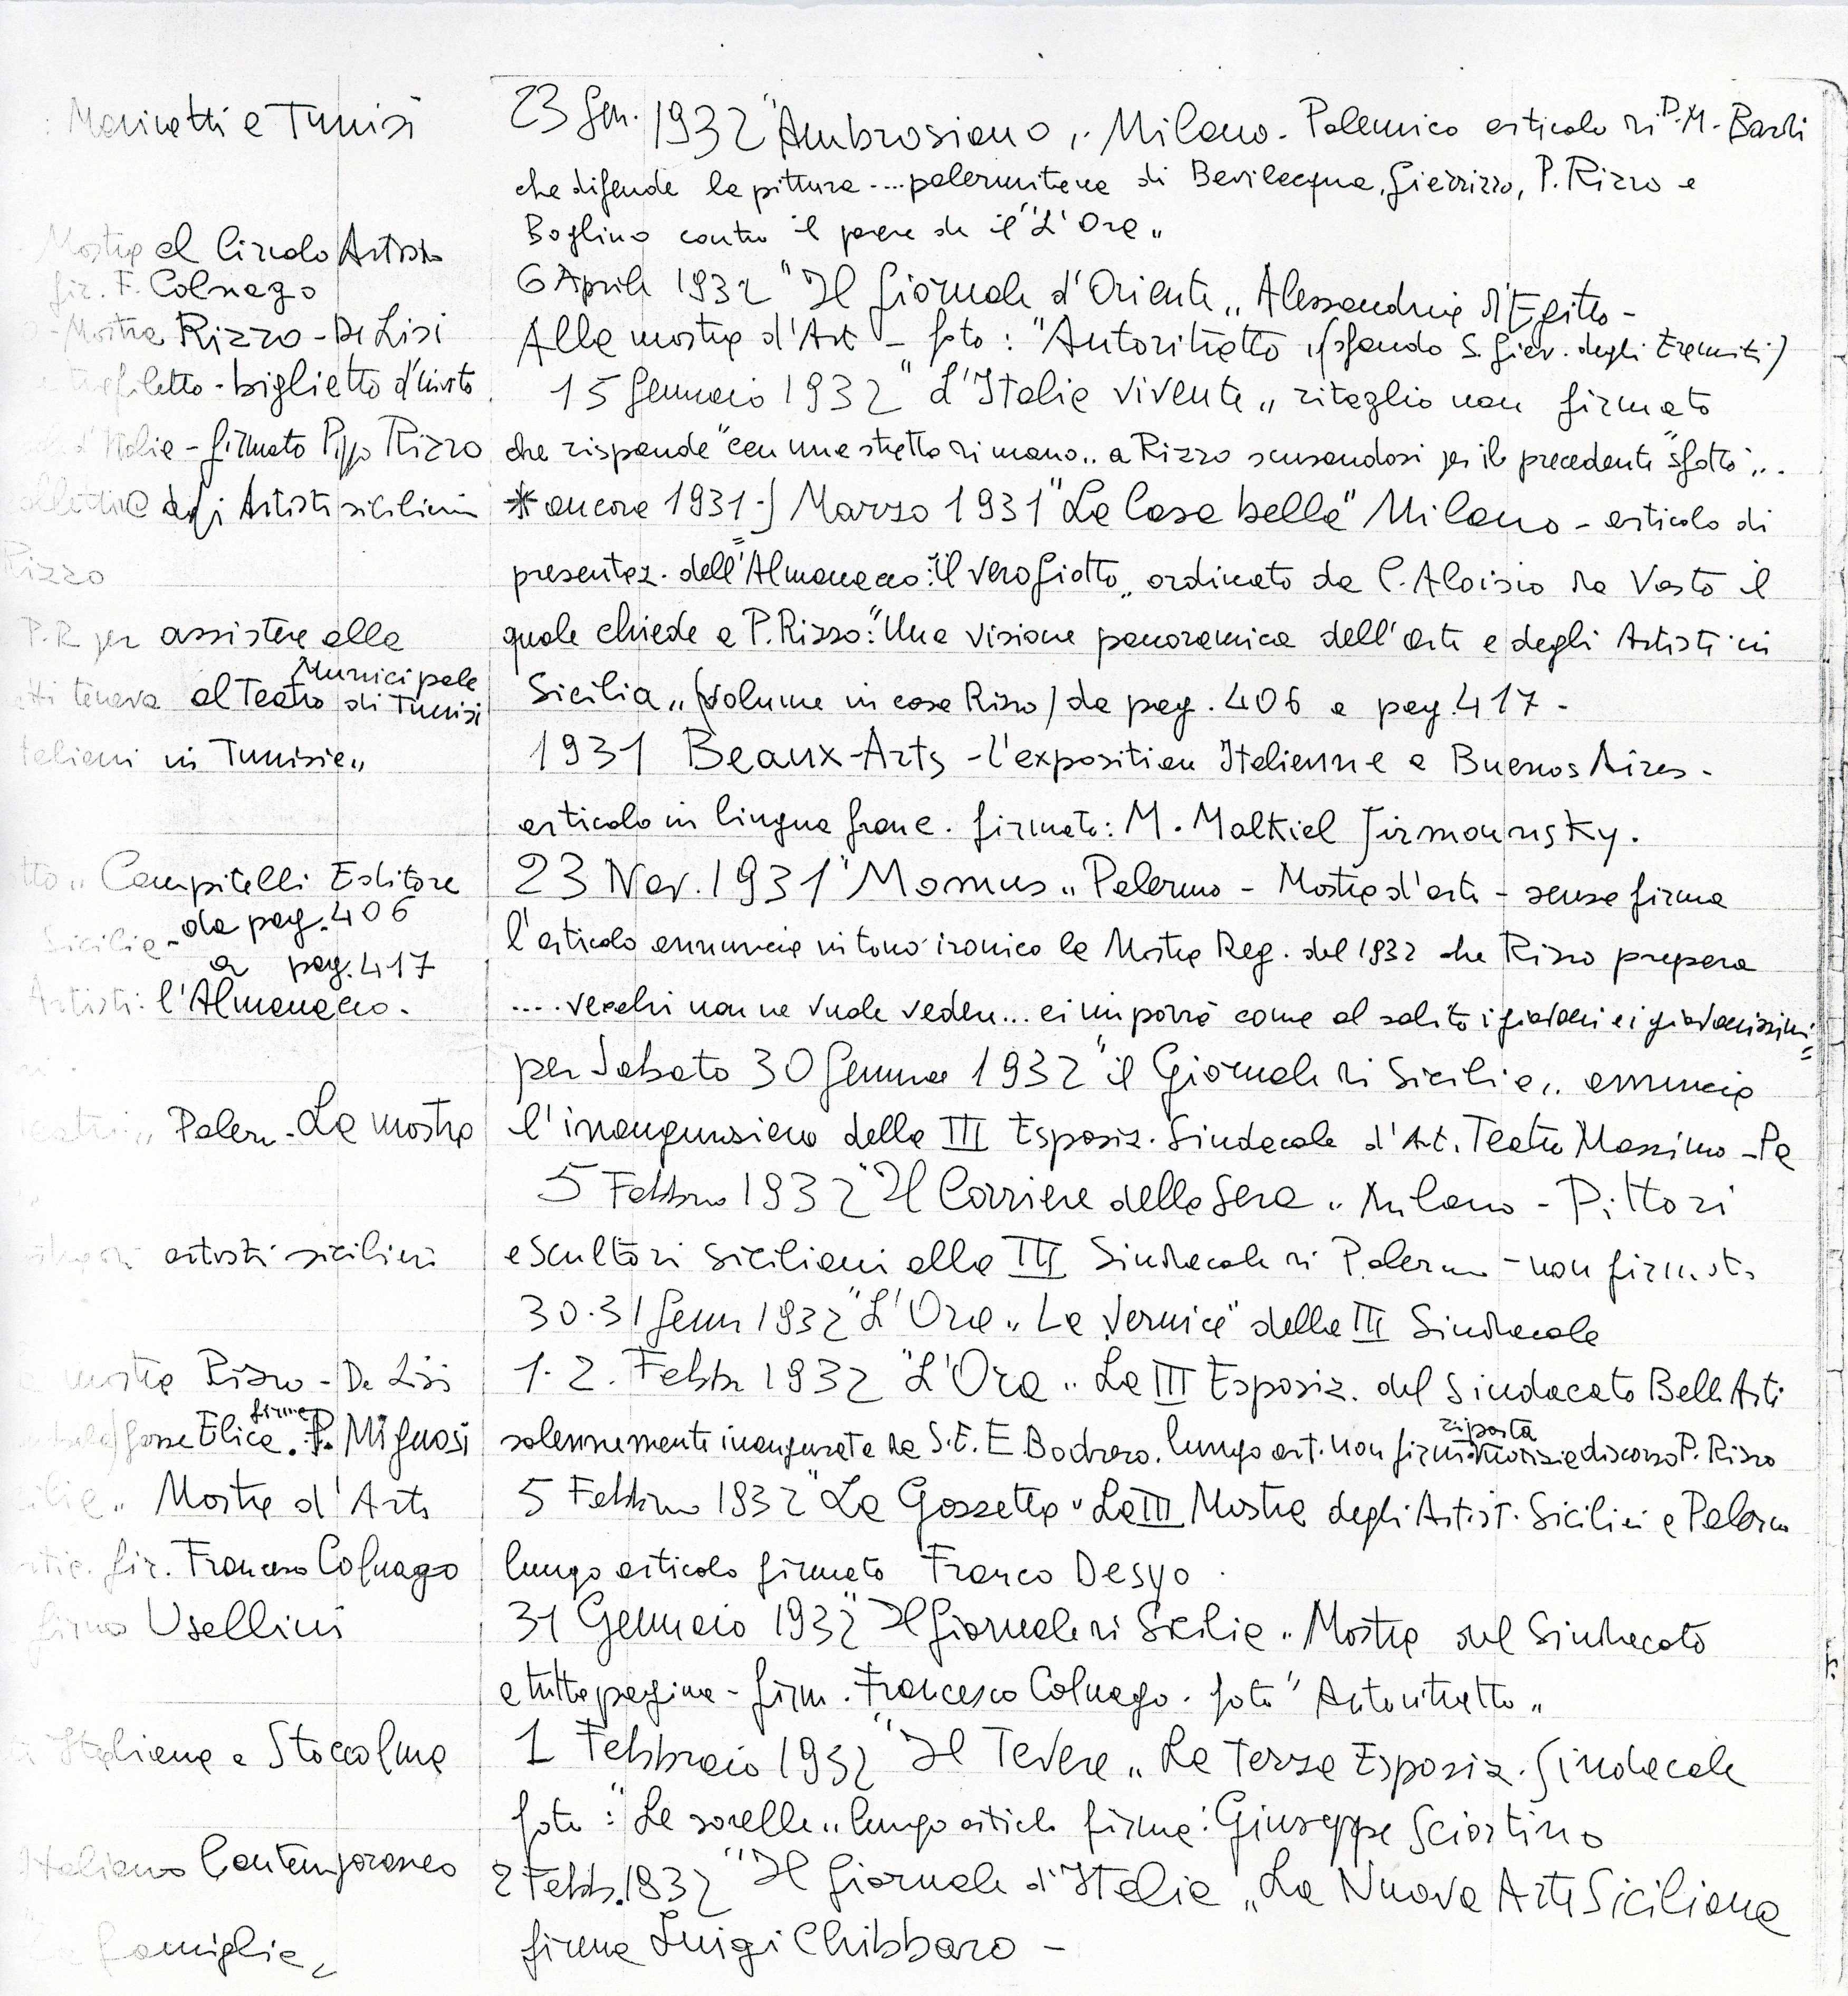 : Marinetti e Tunisi
Mostra al Circolo Artistico
fir. F. Colnago
Mostra Rizzo - De Lisi
trafiletto - biglietto d'invito
d'Italia - firmato Pippo Rizzo
degli Artisti siciliani
Rizzo
P.R per assistere alla
Municipale
teneva al Teatro di Tunisi
in Tunisia„
„ Campitelli Editore
da pag. 406
Sicilia -
a pag. 417
Artisti: l'Almanacco.
„ Paler. - La mostra
artisti siciliani
mostra Rizzo - De Lisi
firma
forse Elica. P. Mignosi
„ Mostra d'Arte
fir. Francesco Colnago
firma Usellini
Italiana a Stoccolma
Italiano Contemporaneo
La famiglia„
23 Gen. 1932 "Ambrosiano„ Milano - Polemico articolo di P.M. Bardi
che difende la pittura .... palermitana di Bevilacqua, Giarrizzo, P. Rizzo e
Boglino contro il parere de il "L'Ora„
6 Aprile 1932 "Il Giornale d'Oriente„ Alessandria d'Egitto -
Alla mostra d'Arte - foto: "Autoritratto„ (sfondo S. Giov. degli Eremiti)
15 Gennaio 1932 "L'Italia vivente„ ritaglio non firmato
che risponde "con una stretta di mano„ a Rizzo scusandosi per il precedente "sfottò„.
* ancora 1931-] Marzo 1931 "La Casa bella" Milano - articolo di
presentaz. dell'Almanacco: "il vero Giotto„ ordinato da C. Aloisio da Vasto il
quale chiede a P. Rizzo: "Una visione panoramica dell'arte e degli Artisti in
Sicilia„ (volume in casa Rizzo) da pag. 406 a pag. 417 -
1931 Beaux-Arts - l'exposition Italienne a Buenos Aires -
articolo in lingua franc. firmato: M. Malkiel Jirmounsky.
23 Nov. 1931 "Momus„ Palermo - Mostra d'arte - senza firma
l'articolo annuncia in tono ironico la Mostra Reg. del 1932 che Rizzo prepara
.... vecchi non ne vuole vedere... ci imporrà come al solito i giovani e i giovanissimi
per Sabato 30 Genna 1932 "il Giornale di Sicilia„ annuncia
l'inaugurazione della III Esposiz. Sindacale d'Art. Teatro Massimo - Pa
5 Febbrao 1932 "Il Corriere della Sera„ Milano - Pittori
e Scultori Siciliani alla III Sindacale di Palermo - non firmato
30-31 Genn 1932 "L'Ora„ La "vernice" della III Sindacale
1-2. Febbr 1932 "L'Ora„ La III Esposiz. del Sindacato Belle Arti
riporta
solennemente inaugurata da S.E. E Bodrero. lungo art. non firm. notizie discorso P. Rizzo
5 Febbrao 1932 "La Gazzetta" La III Mostra degli Artist. Siciliani a Palermo
lungo articolo firmato Franco Desyo.
31 Gennaio 1932 "Il Giornale di Sicilia„ Mostra del Sindacato
a tutta pagina - firm. Francesco Colnago. foto "Autoritratto„
1 Febbraio 1932 "Il Tevere„ La Terza Esposiz. Sindacale
foto: "Le sorelle„ lungo articolo firma: Giuseppe Sciortino
2 Febb. 1932 "Il Giornale d'Italia„ La Nuova Arte Siciliana
firma Luigi Chibbaro -